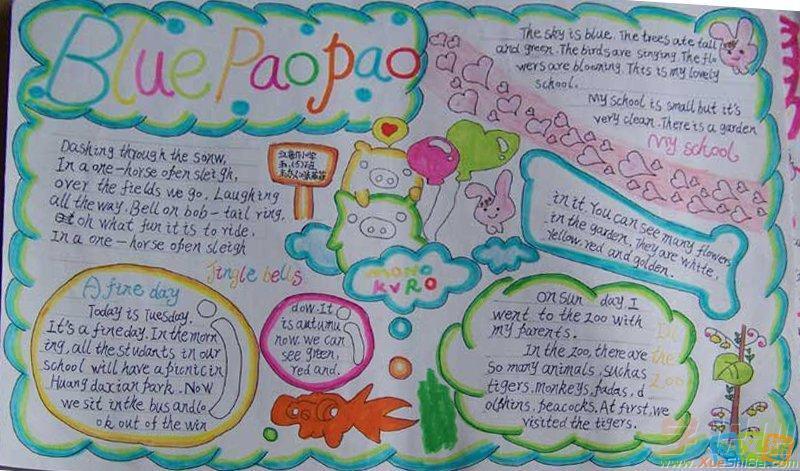 Blue Paopao
The sky is blue. The trees are tall
and green. The birds are singing. The flo
wers are blooming. This is my lovely
school.
My school is small but it's
very clean. There is a garden
My school
in it You can see many flowers
in the garden. They are white,
yellow, red and golden.
Dashing through the sonw,
In a one-horse open sleigh,
over the fields we go. Laughing
all the way. Bell on bob-tail ring,
oh what fun it is to ride.
In a one-horse open sleigh
Jingle bells
MONO
KVRO
A fine day
Today is Tuesday.
It's a fineday. In the morn
ing, all the studants in our
school will have a picnic in
Huang daxian park. Now
we sit in the bus and lo
ok out of the win
dow. It
is autumu
now. we can
see green,
red and.
On sun day, I
went to the zoo with
my parents.
In the zoo, there are
so many animals, suchas
tigers. monkeys, padas, d
olphins, peacocks. At first, we
visited the tigers.
In
the
Zoo
www.XueShiBa.com